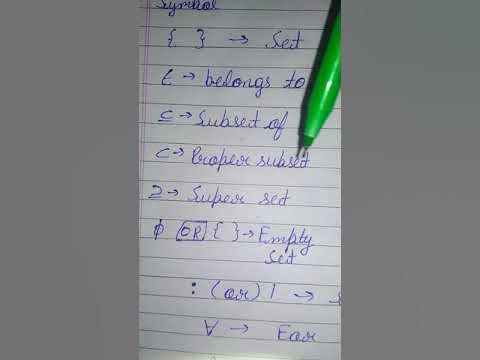 Symbol
{ } → Set
∈ → belongs to
⊆ → Subset of
⊂ → Proper subset
⊇ → Super set
ϕ OR { } → Empty
Set
: (or) | →
∀ → For